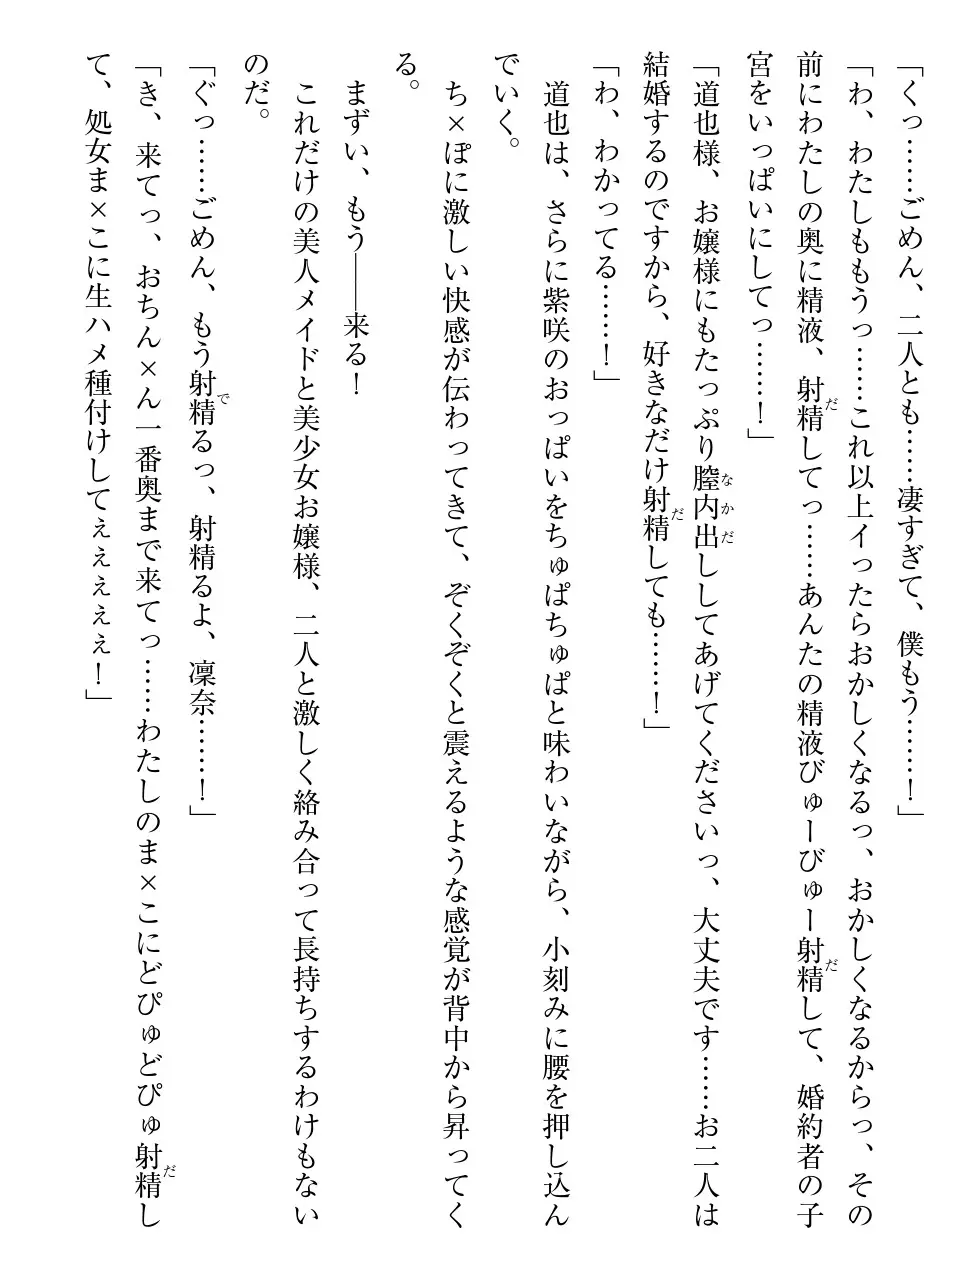 「くっ……ごめん、二人とも……凄すぎて、僕もう……！」
「わ、わたしももうっ……これ以上イったらおかしくなるっ、おかしくなるからっ、その
前にわたしの奥に精液、射精してっ……あんたの精液びゅーびゅー射精して、婚約者の子
宮をいっぱいにしてっ……！」
「道也様、お嬢様にもたっぷり膣内出ししてあげてくださいっ、大丈夫です……お二人は
結婚するのですから、好きなだけ射精しても……！」
「わ、わかってる……！」
　道也は、さらに紫咲のおっぱいをちゅぱちゅぱと味わいながら、小刻みに腰を押し込ん
でいく。
　ち×ぽに激しい快感が伝わってきて、ぞくぞくと震えるような感覚が背中から昇ってく
る。
　まずい、もう――来る！
　これだけの美人メイドと美少女お嬢様、二人と激しく絡み合って長持ちするわけもない
のだ。
「ぐっ……ごめん、もう射精るっ、射精るよ、凜奈……！」
「き、来てっ、おちん×ん一番奥まで来てっ……わたしのま×こにどぴゅどぴゅ射精し
て、処女ま×こに生ハメ種付けしてぇぇぇぇ！」